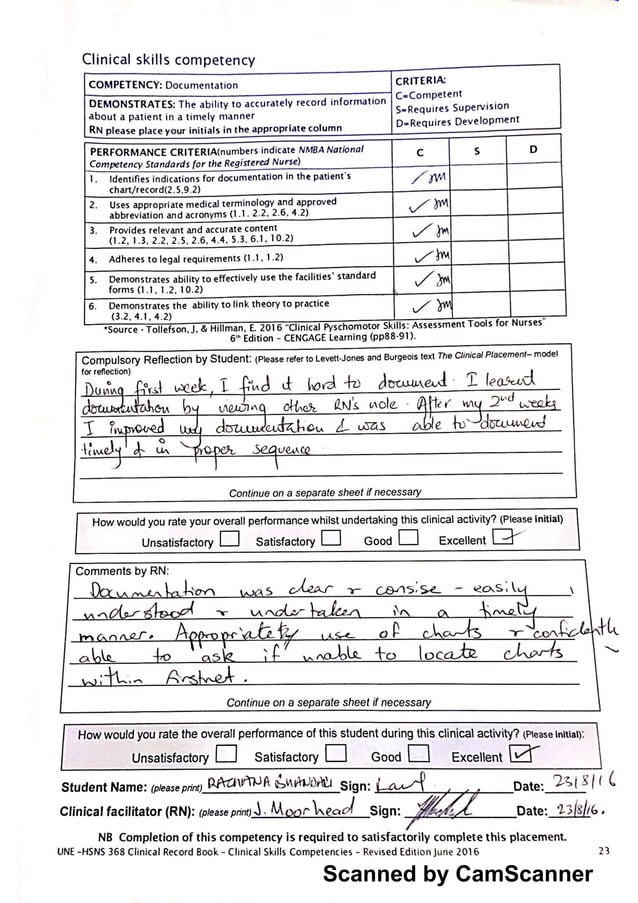 Clinical skills competency
COMPETENCY: Documentation
DEMONSTRATES: The ability to accurately record information
about a patient in a timely manner
RN please place your initials in the appropriate column
CRITERIA:
C=Competent
S=Requires Supervision
D=Requires Development
PERFORMANCE CRITERIA(numbers indicate NMBA National
Competency Standards for the Registered Nurse)
C S D
1. Identifies indications for documentation in the patient's
chart/record(2.5,9.2)
✓ JM
2. Uses appropriate medical terminology and approved
abbreviation and acronyms (1.1. 2.2, 2.6, 4.2)
✓ JM
3. Provides relevant and accurate content
(1.2, 1.3, 2.2, 2.5, 2.6, 4.4, 5.3, 6.1, 10.2)
✓ JM
4. Adheres to legal requirements (1.1, 1.2)
✓ JM
5. Demonstrates ability to effectively use the facilities' standard
forms (1.1, 1.2, 10.2)
✓ JM
6. Demonstrates the ability to link theory to practice
(3.2, 4.1, 4.2)
✓ JM
*Source - Tollefson, J, & Hillman, E. 2016 "Clinical Pyschomotor Skills: Assessment Tools for Nurses"
6th Edition - CENGAGE Learning (pp88-91).
Compulsory Reflection by Student: (Please refer to Levett-Jones and Burgeois text The Clinical Placement- model
for reflection)
During first week, I find it hard to document. I learned
documentation by viewing other RN's note. After my 2nd weeks
I improved my documentation & was able to document
timely & in proper sequence
Continue on a separate sheet if necessary
How would you rate your overall performance whilst undertaking this clinical activity? (Please initial)
Unsatisfactory Satisfactory Good Excellent ✓
Comments by RN:
Documentation was clear & consise - easily
understood & undertaken in a timely
manner. Appropriately use of charts & confidently
able to ask if unable to locate charts
within firstnet.
Continue on a separate sheet if necessary
How would you rate the overall performance of this student during this clinical activity? (Please initial):
Unsatisfactory Satisfactory Good Excellent ✓
Student Name: (please print) RACHANA BHANDARI Sign: Date: 23/8/16
Clinical facilitator (RN): (please print) J. Moorhead Sign: Date: 23/8/16.
NB Completion of this competency is required to satisfactorily complete this placement.
UNE -HSNS 368 Clinical Record Book - Clinical Skills Competencies - Revised Edition June 2016 23
Scanned by CamScanner